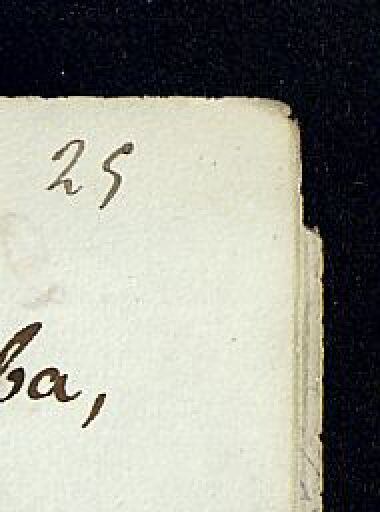 25
ba,